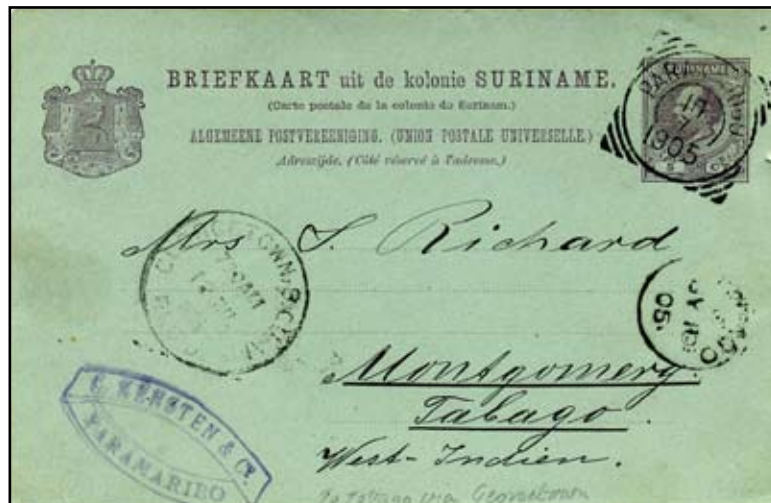 BRIEFKAART uit de kolonie SURINAME.
(Carte postale de la colonie de Surinam.)
ALGEMEENE POSTVEREENIGING. (UNION POSTALE UNIVERSELLE.)
Adreszijde. (Côté réservé à l'adresse.)
SURINAME
1905
Mrs S. Richard
TOWN
05.
Montgomery.
Tabago.
West-Indien.
C. KERSTEN & Co.
PARAMARIBO
to Tobago via Georgetown